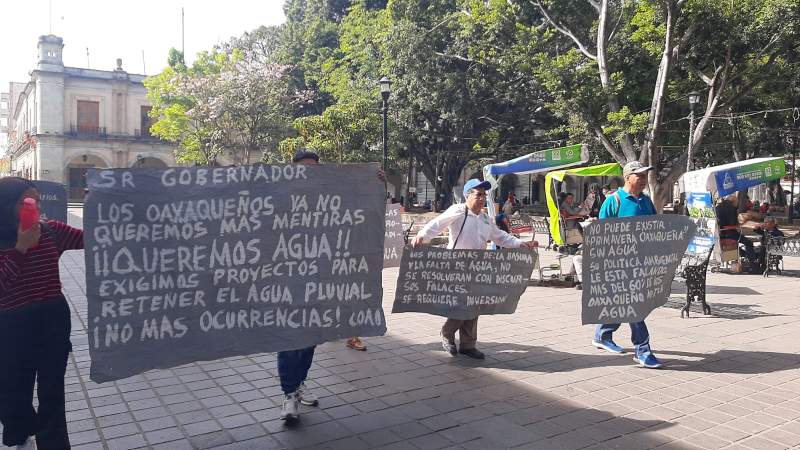 SR GOBERNADOR
LOS OAXAQUEÑOS YA NO
QUEREMOS MAS MENTIRAS
¡¡QUEREMOS AGUA!!
EXIGIMOS PROYECTOS PARA
RETENER EL AGUA PLUVIAL
¡NO MAS OCURRENCIAS!
LOS PROBLEMAS DE LA BASURA
Y LA FALTA DE AGUA, NO
SE RESOLVERAN CON DISCUR
SOS FALACES.
SE REQUIERE INVERSION
NO PUEDE EXISTIR
PRIMAVERA OAXAQUEÑA
SIN AGUA
SU POLITICA
LE ESTA FALLANDO
MAS DEL 60%
OAXAQUEÑO NO
AGUA